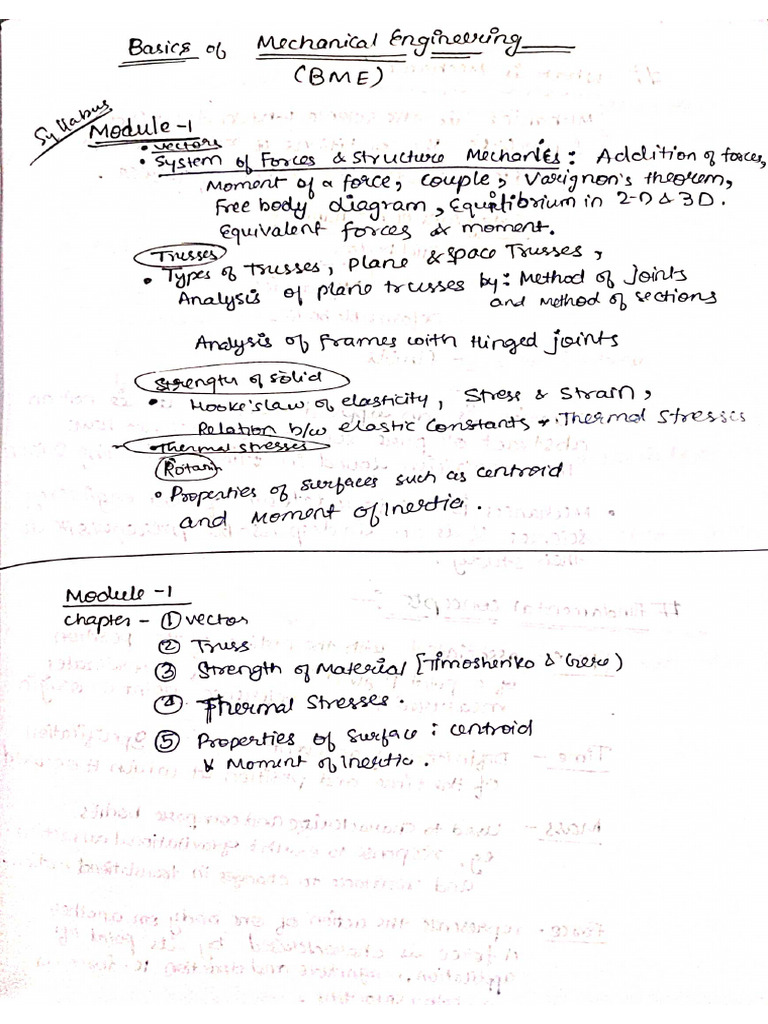 Basics of Mechanical Engineering
(BME)
Syllabus
Module-1
• vectors
• System of Forces & Structure Mechanics: Addition of forces,
Moment of a force, couple, Varignon's theorem,
Free body diagram, Equilibrium in 2-D & 3D.
Equivalent forces & moment.
Trusses
• Types of trusses, plane & space Trusses,
Analysis of plane trusses by: Method of Joints
and Method of sections
Analysis of frames with Hinged joints
Strength of solid
• Hooke's law of elasticity, Stress & Strain,
Relation b/w elastic constants Thermal Stresses
• Thermal stresses
• Properties of surfaces such as centroid
and Moment of Inertia.
Module -1
chapter - ① vector
② Truss
③ Strength of Material [Timosheriko & Gere)
④ Thermal Stresses.
⑤ Properties of Surface: centroid
& Moment of Inertia.